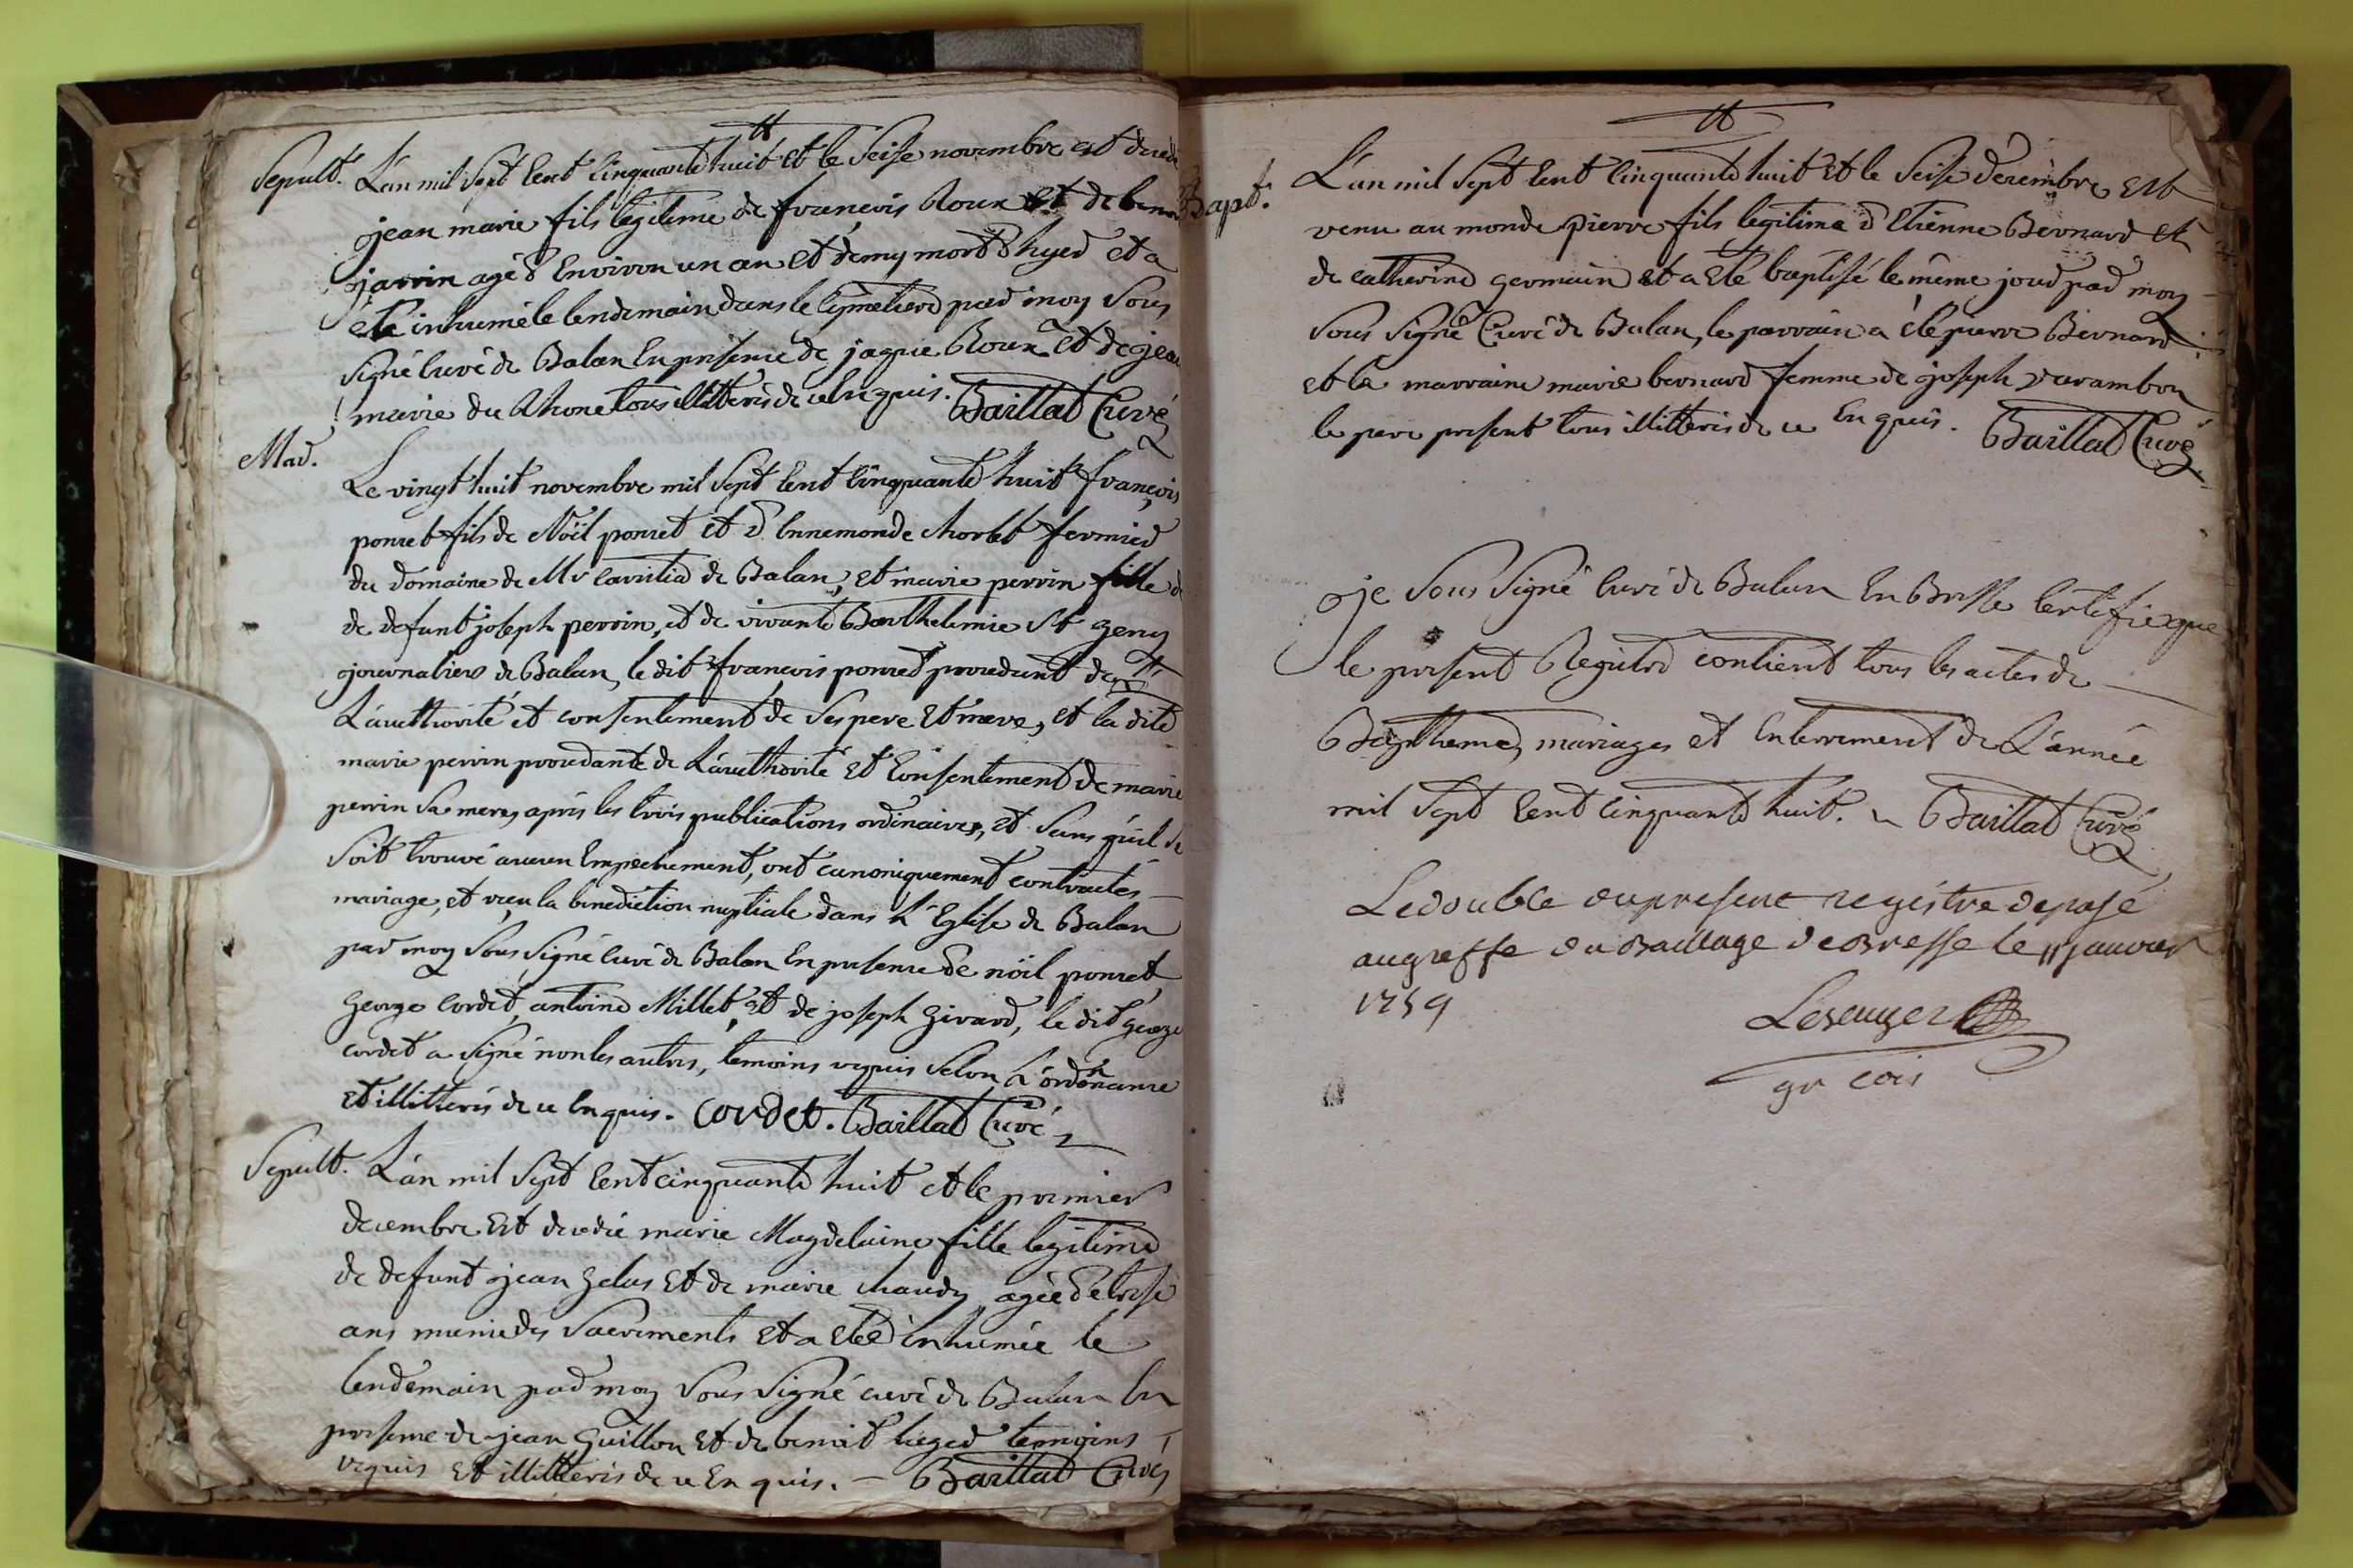 Sepult. L'an mil sept cent cinquante huit et le seise novembre est decedé
jean marie fils legitime de francois Roux et de
jarrin agé d'environ un an et demy mort hyer et a
été inhumé le lendemain dans le cymetiere par moy sous
signé curé de Balan en presence de jaque Roux et de jean
marie du Rhone tous illitterés de ce enquis. Baillat Curé
Mar. Le vingt huit novembre mil sept cent cinquante huit francois
ponset fils de Nöil ponset et d'Ennemonde chorlet fermier
du domaine de Mr de Balan, et marie perrin fille
de defunt joseph perrin, et de vivante Barthelemie St geny
journaliers de Balan, le dit francois ponset procedant de
L'authorité et consentement de ses pere et mere, et la dite
marie perrin procedante de L'authorité et consentement de marie
perrin sa mere, après les trois publications ordinaires, et sans qu'il se
soit trouvé aucun empechement, ont canoniquement contractés
mariage, et reçu la benediction nuptiale dans L'Eglise de Balan
par moy sous signé curé de Balan en presence de nöil ponset,
George Cordet, antoine Millet, et de joseph Girard, le dit George
cordet a signé non les autres, temoins requis selon L'ordonnance
et illitterés de ce enquis. Cordet. Baillat Curé
Sepult. L'an mil sept cent cinquante huit et le premier
decembre est decedée marie Magdelaine fille legitime
de defunt jean Gelas et de marie chaudy agée de treise
ans munie des sacrements et a été inhumée le
lendemain par moy sous signé curé de Balan en
presence de jean Guillon et de benoit lieger temoins
requis et illitterés de ce enquis. — Baillat Curé
Bapt. L'an mil sept cent cinquante huit et le seise decembre est
venu au monde pierre fils legitime d'Etienne Bernard et
de catherine germain et a été baptisé le même jour par moy
sous signé Curé de Balan, le parrain a été pierre Bernard
et la marraine marie bernard femme de joseph varambon
le pere present tous illitterés de ce enquis. Baillat Curé
je sous signé curé de Balan en Bresse certifie que
le present Registre contient tous les actes de
Baptheme, mariages et enterrement de L'année
mil sept cent cinquante huit. Baillat Curé
Le double du present registre deposé
au greffe du Bailliage de Bresse le 11 janvier
1759